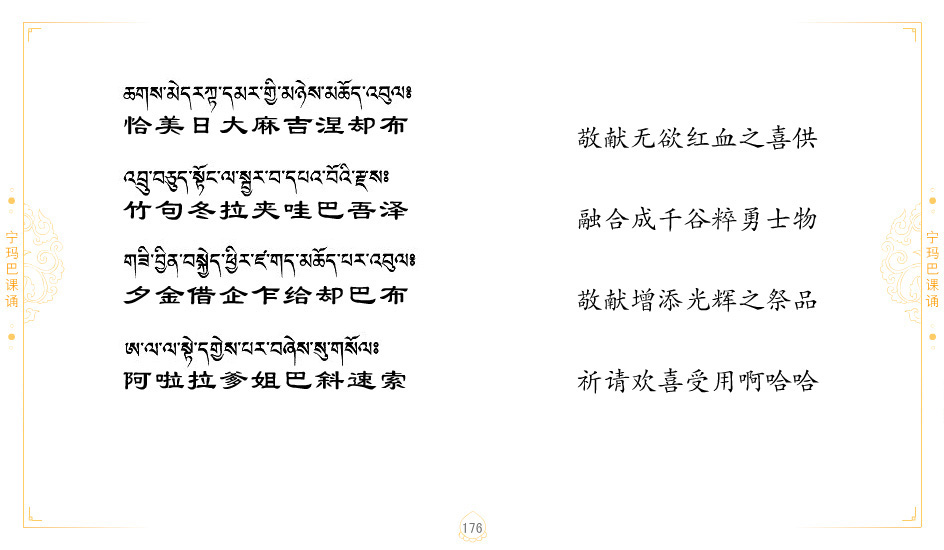 ཆགས་མེད་རཀྟ་དམར་གྱི་མཉེས་མཆོད་འབུལ༔
恰美日大麻吉涅却布
敬献无欲红血之喜供
འབྲུ་བཅུད་སྟོང་ལ་སྦྱར་བ་དཔའ་བོའི་རྫས༔
竹句冬拉夹哇巴吾泽
融合成千谷粹勇士物
གཟི་བྱིན་བསྐྱེད་ཕྱིར་ཛ་གད་མཆོད་པར་འབུལ༔
夕金借企乍给却巴布
敬献增添光辉之祭品
ཨ་ལ་ལ་སྟེ་དགྱེས་པར་བཞེས་སུ་གསོལ༔
阿啦拉爹姐巴斜速索
祈请欢喜受用啊哈哈
宁玛巴课诵
宁玛巴课诵
176